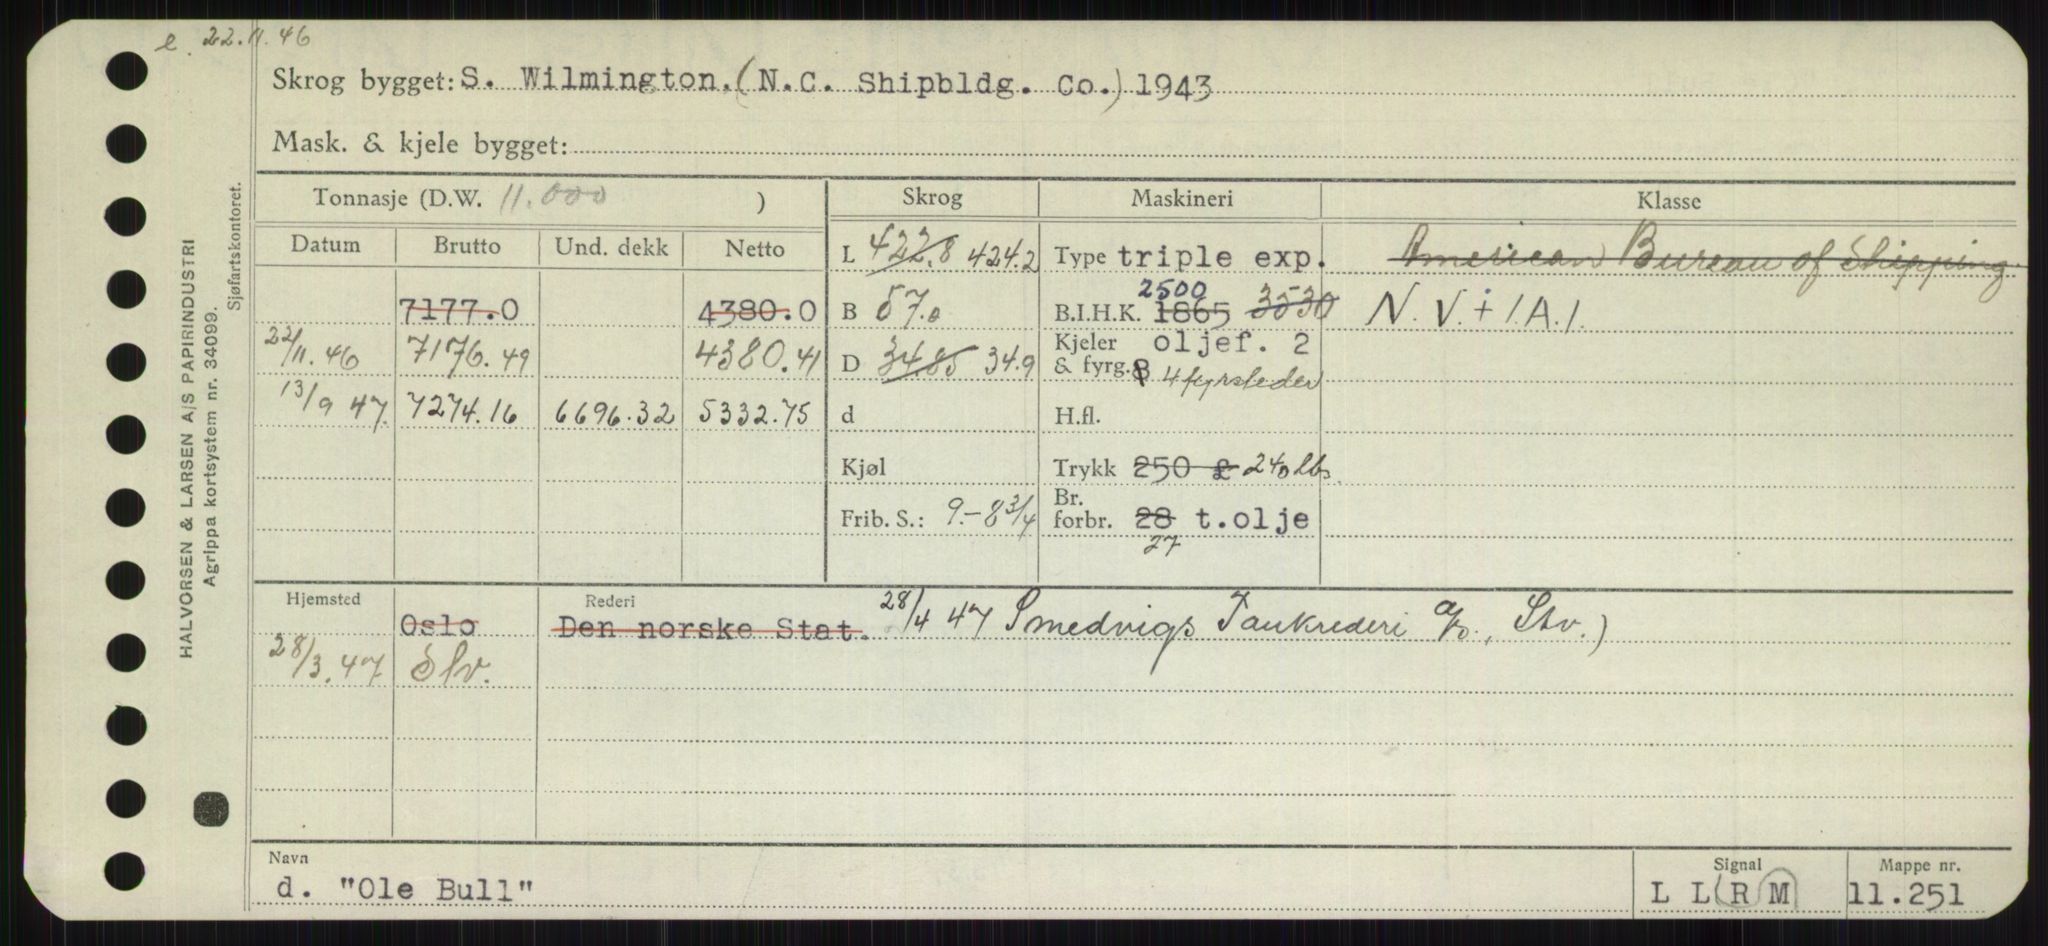 e. 22.11.46
Skrog bygget: S. Wilmington. (N.C. Shipbldg. Co.) 1943
Mask. & kjele bygget:
Tonnasje (D.W. 11.000 ) Skrog Maskineri Klasse
Datum Brutto Und. dekk Netto L 422.8 424.2 Type triple exp. American Bureau of Shipping
2500
7177.0 4380.0 B 57.0 B.I.H.K. 1865 3530 N.V. + 1A.1.
22/11.46 7176.49 4380.41 D 34.85 34.9 Kjeler oljef. 2
& fyrg. 8 4 fyrsteder
13/9 47. 7274.16 6696.32 5332.75 d H.fl.
Kjøl Trykk 250 £ 240 lbs.
Frib. S.: 9.-8 3/4 Br. forbr. 28 t.olje
27
Hjemsted Rederi
Oslo Den norske Stat. 28/4 47 Smedvigs Tankrederi a/s, Stv.)
28/3.47 Stv.
Navn Signal Mappe nr.
d. "Ole Bull" L L R M 11.251
HALVORSEN & LARSEN A/S PAPIRINDUSTRI
Agrippa kortsystem nr. 34099.
Sjøfartskontoret.